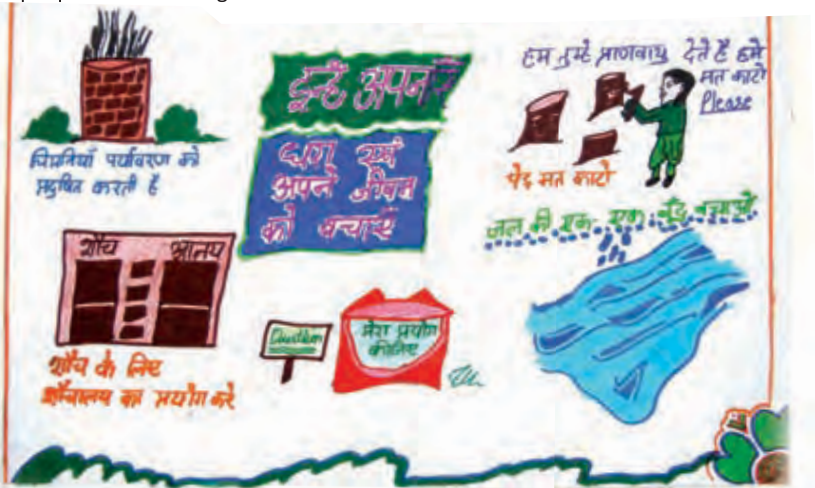 चिमनियाँ पर्यावरण को
प्रदुषित करती है
इन्हें अपनाऐं
धरा एवं
अपने जीवन
को बचाऐं
हम तुम्हे प्राणवायु देते है हमे
मत काटो
Please
पेड़ मत काटो
जल की एक एक बूँद बचाओ
शौच
शौच के लिए
शौचालय का प्रयोग करे
Dustbin
मेरा प्रयोग
कीजिए